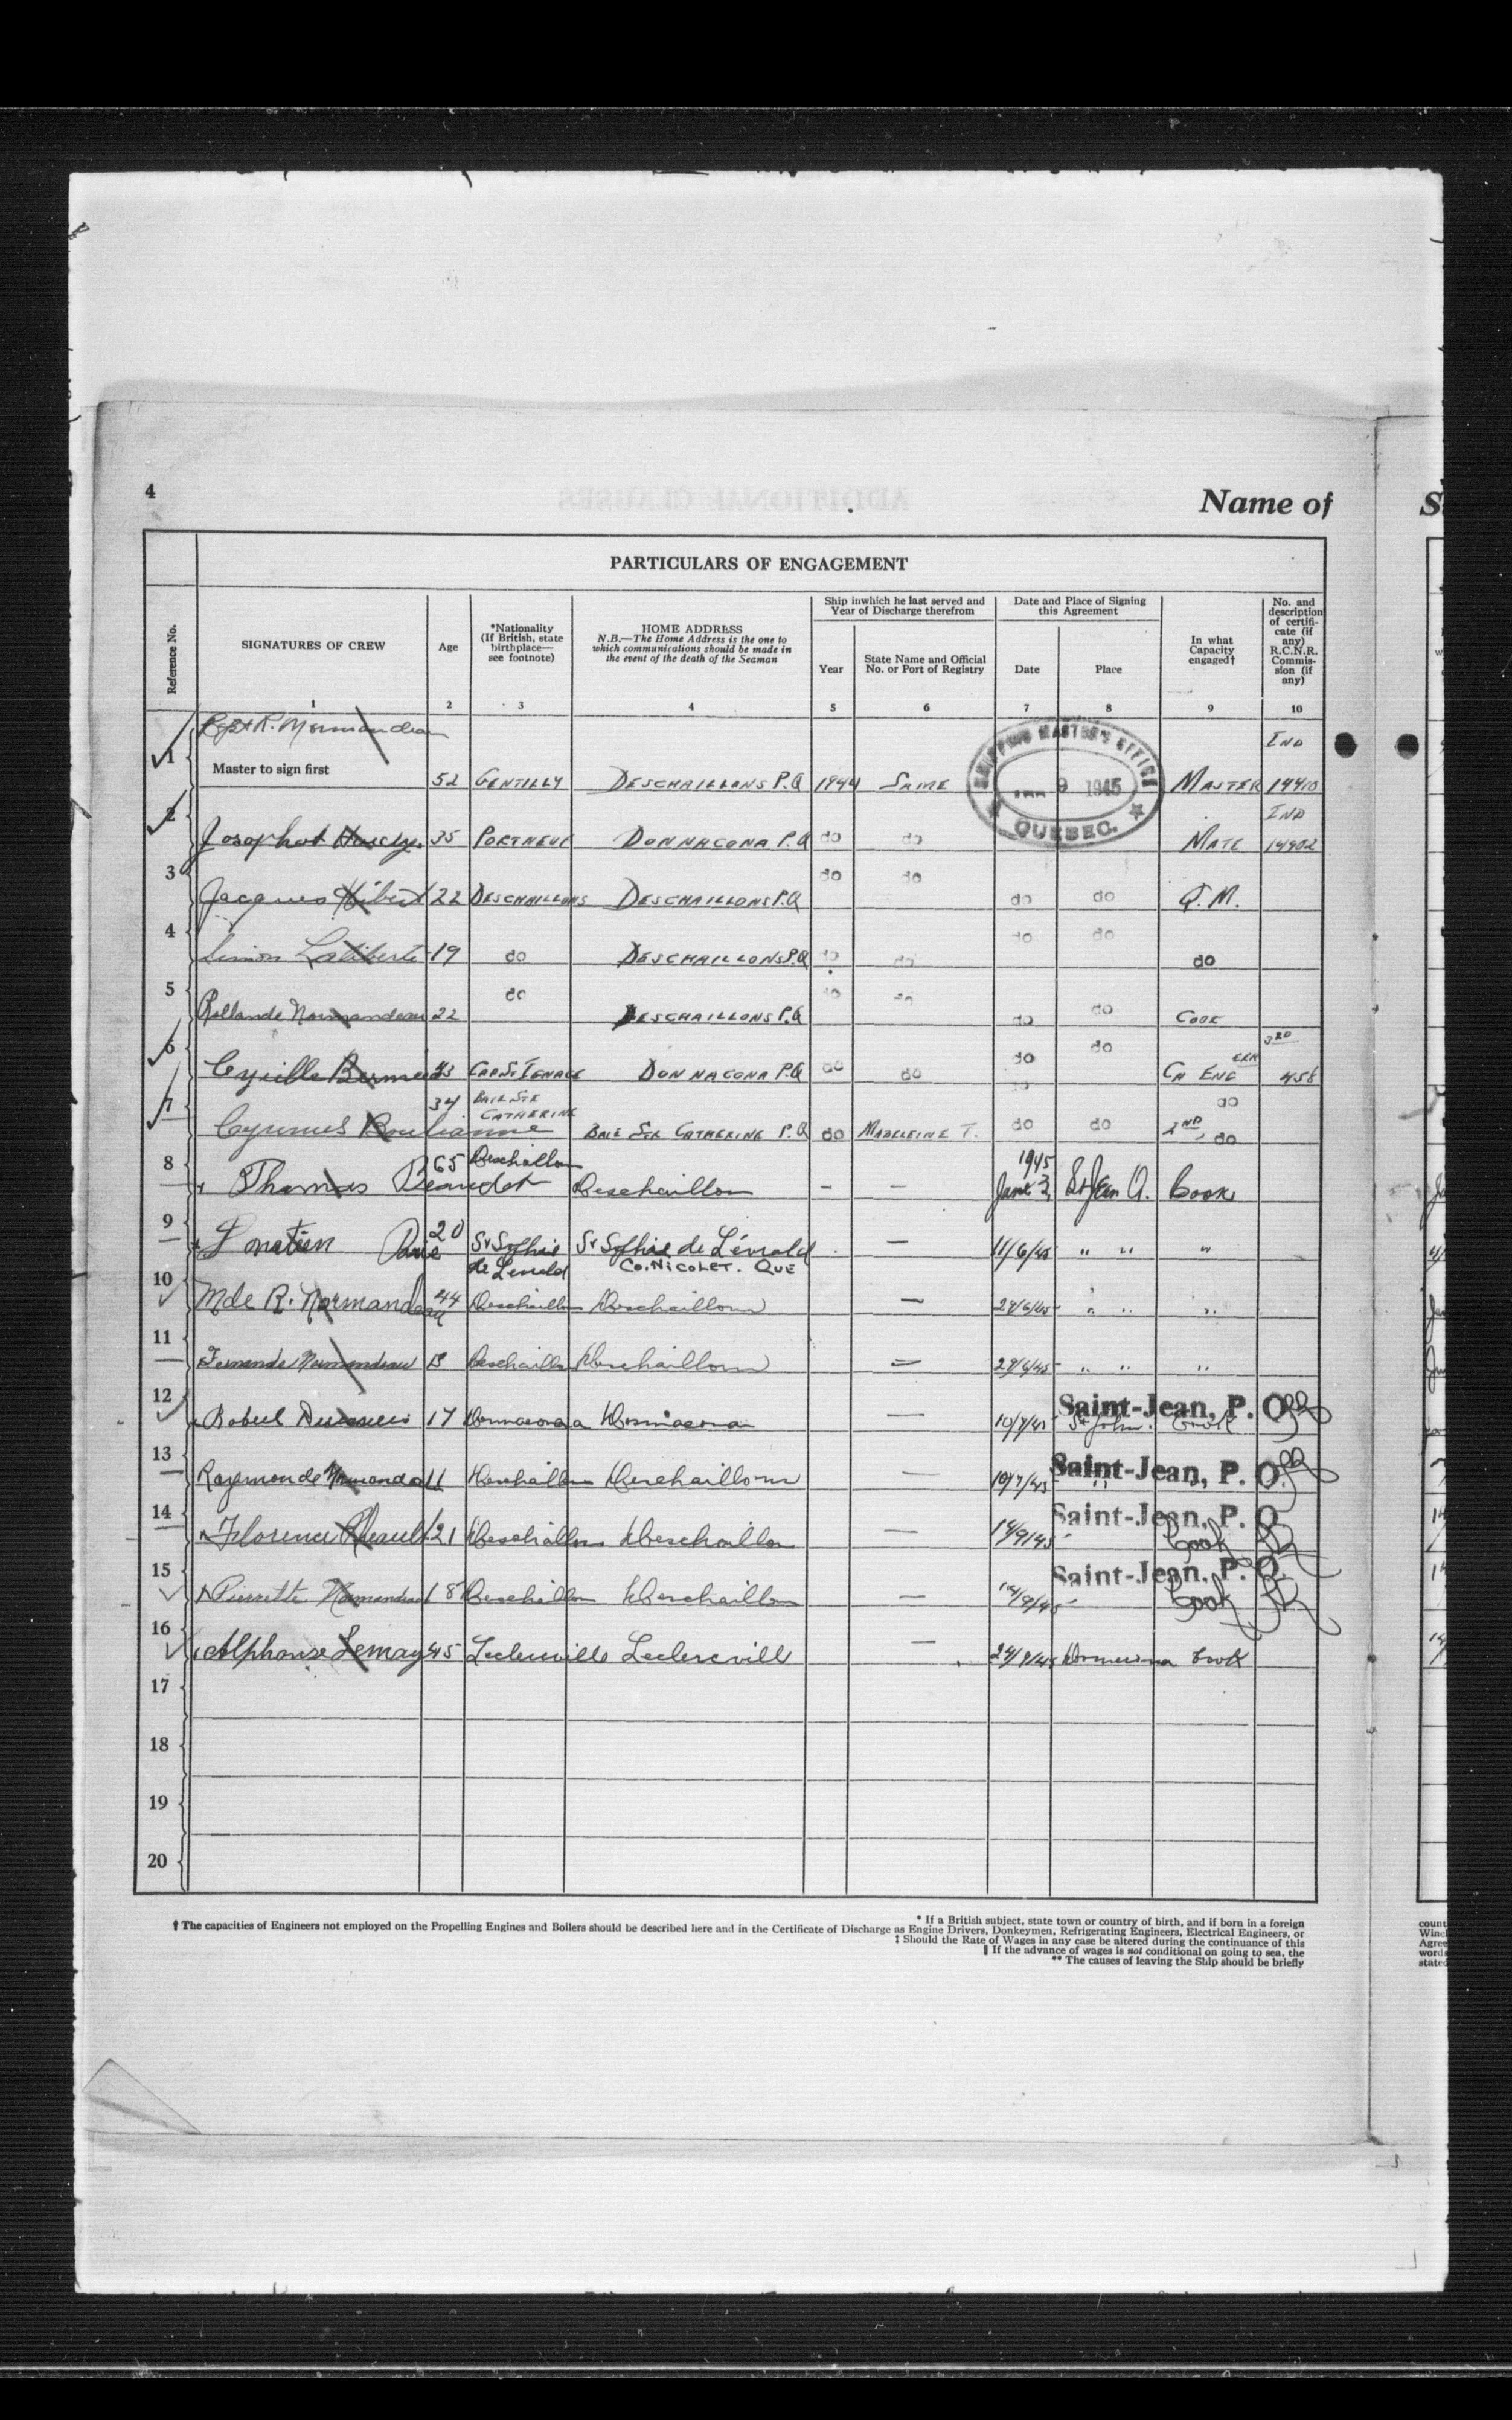 4
Name of
PARTICULARS OF ENGAGEMENT
Reference No.
SIGNATURES OF CREW
Age
*Nationality
(If British, state
birthplace—
see footnote)
HOME ADDRESS
N.B.—The Home Address is the one to
which communications should be made in
the event of the death of the Seaman
Ship inwhich he last served and
Year of Discharge therefrom
Year
State Name and Official
No. or Port of Registry
Date and Place of Signing
this Agreement
Date
Place
In what
Capacity
engaged†
No. and
description
of certifi-
cate (if
any)
R.C.N.R.
Commis-
sion (if
any)
1 2 3 4 5 6 7 8 9 10
SHIPPING MASTER'S OFFICE
9 1945
QUEBEC.
R. Normandeau IND
1 Master to sign first 52 GENTILLY DESCHAILLONS P.Q 1944 SAME MASTER 14410
IND
2 35 PORTNEUF DONNACONA P.Q do do MATE 14902
3 Jacques 22 DESCHAILLONS DESCHAILLONS P.Q do do do do Q.M.
4 Simon Laliberté 19 do DESCHAILLONS P.Q do do do do do
5 Rollande Normandeau 22 do DESCHAILLONS P.Q do do do do COOK
3RD
6 Cyrille 43 CAP ST IGNACE DONNACONA P.Q do do do do CH ENG 458
7 34 BAIE STE CATHERINE BAIE STE CATHERINE P.Q do MADELEINE T. do do 2ND do do
8 Thomas Beaudet 65 Deschaillon Deschaillon - - 1945 June 3 St Jean O. Cook
9 20 St Sophie de Levrald St Sophie de Lévrald CO. NICOLET. QUE — 11/6/45 " " "
10 Mde R. Normandeau 44 Deschaillon Deschaillons — 29/6/45 " " "
11 Fernande Normandeau Deschaillon Deschaillons = 29/6/45 " " "
12 17 Donnacona Donnacona — 10/7/45 Saint-Jean, P. O. St John
13 Raymonde Normandeau 11 Deschaillon Deschaillons — 10/7/45 Saint-Jean, P. O.
14 Florence 21 Deschaillon Deschaillon — 14/9/45 Saint-Jean, P. O. Cook
15 Pierrette Normandeau 18 Deschaillon Deschaillon — Saint-Jean, P. O. Cook
16 Alphonse Lemay 45 Leclercville Leclercville — Donnacona Cook
17
18
19
20
* If a British subject, state town or country of birth, and if born in a foreign
† The capacities of Engineers not employed on the Propelling Engines and Boilers should be described here and in the Certificate of Discharge as Engine Drivers, Donkeymen, Refrigerating Engineers, Electrical Engineers, or
‡ Should the Rate of Wages in any case be altered during the continuance of this
‖ If the advance of wages is not conditional on going to sea, the
** The causes of leaving the Ship should be briefly